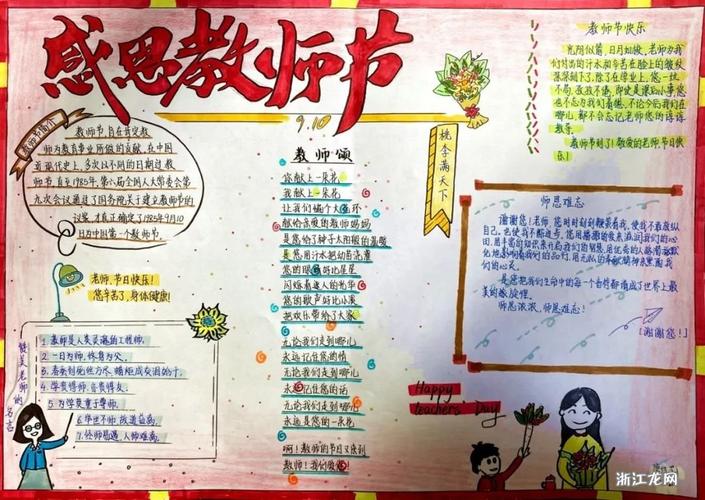 感恩教师节
9.10
教师节简介
教师节,旨在肯定教
师为教育事业所做的贡献,在中国
近现代史上,多次以不同的日期过教
师节,直至1985年,第六届全国人大常委会第
九次会议通过了国务院关于建立教师节的
议案,才真正确定了1985年9月10
日为中国第一个教师节。
老师,节日快乐!
您辛苦了,身体健康!
赞美老师的名言
1.教师是人类灵魂的工程师。
2.一日为师,终身为父。
3.春蚕到死丝方尽,蜡炬成灰泪始干。
4.学贵得师,亦贵得友。
5.为学莫重于尊师。
6.学世不师,故道益离。
7.经师易遇,人师难遇。
教师颂
你献上一朵花
我献上一朵花
让我们编个大花环
献给亲爱的教师妈妈
是您给了种子太阳般的温暖
是您用汗水把幼苗浇灌
您的眼睛好比星星
闪烁着迷人的光华
您的歌声好比小溪
把欢乐带给了大家
无论我们走到哪儿
永远记住您的情
无论我们走到哪儿
永远记住您的话
无论我们走到哪儿
永远是您的一朵花
啊!教师的节日又来到
教师!我们爱您!
桃李满天下
教师节快乐
光阴似箭,日月如梭,老师为我
们付出的汗水和辛苦在脸上的皱纹
深深刻下,除了在学业上,您一丝
不苟,孜孜不倦,即使是课后小事您
也不忘为我们着想,不论今后我们在
哪儿,都不会忘记老师您的谆谆
教导。
教师节到了!敬爱的老师节日快
乐!
师恩难忘
谢谢您!老师,您时时刻刻鞭策着我,使我不敢放纵自
己,也使我不断进步。您用
师恩浓浓,师恩难忘!
谢谢您!
Happy
teachers' Day
浙江龙网